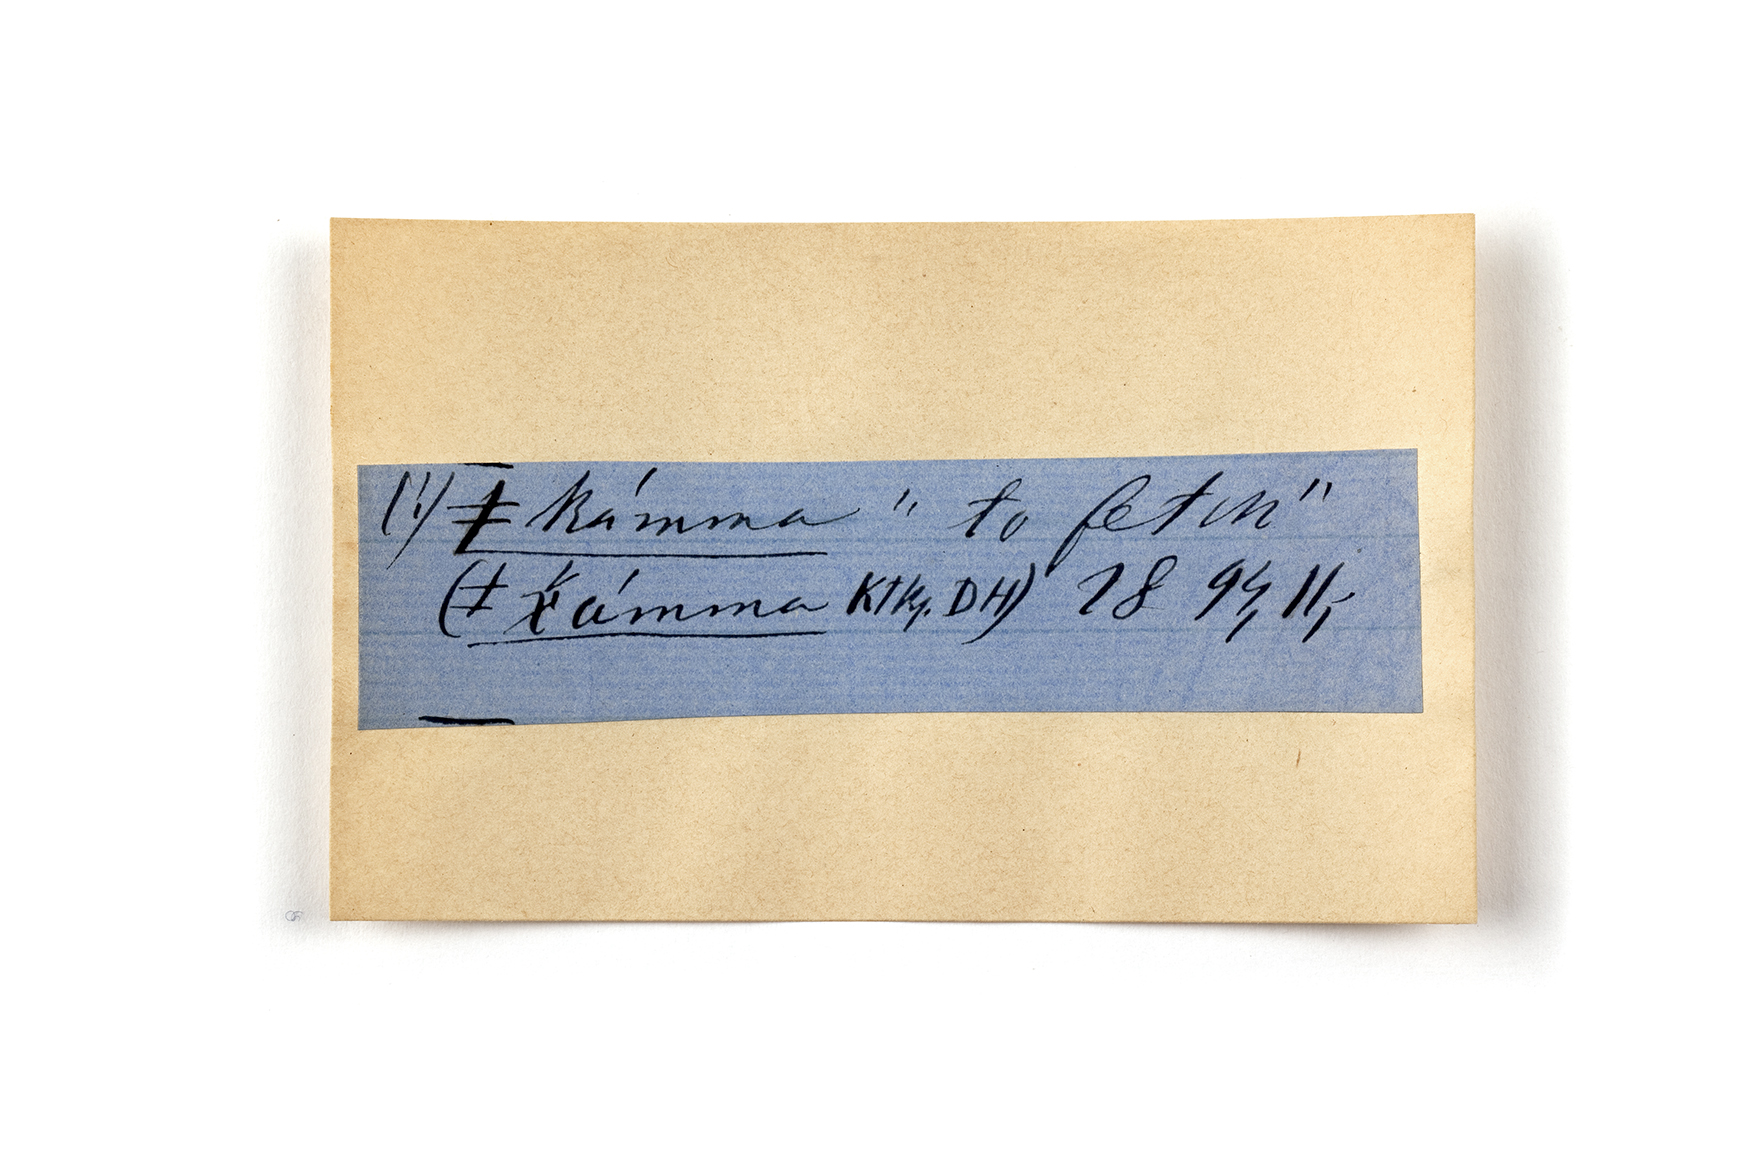 (!) ǂ kámma " to fetch"
(ǂ k̔ámma Ktkɡ. DH) 28 94, 11,